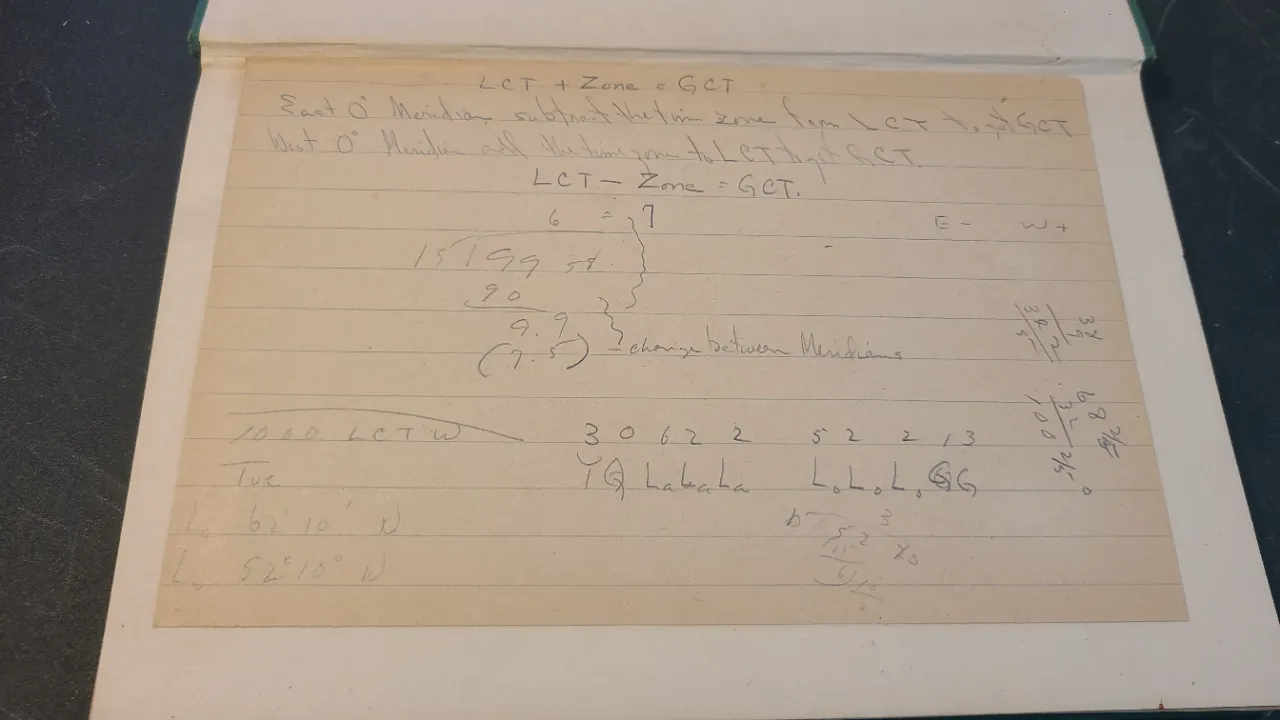 LCT + Zone = GCT
East 0° Meridian subtract the time zone from LCT to get GCT
West 0° Meridian add the time zone to LCT to get GCT.
LCT - Zone = GCT.
6 = 7
E - W +
15 99 58
90
9.9
(7.5) - change between Meridians
1000 LCT W 3 0 6 2 2 5 2 2 1 3
Tue Y Q La La La Lo Lo Lo G G
La 62° 10' N
Lo 52° 10° W